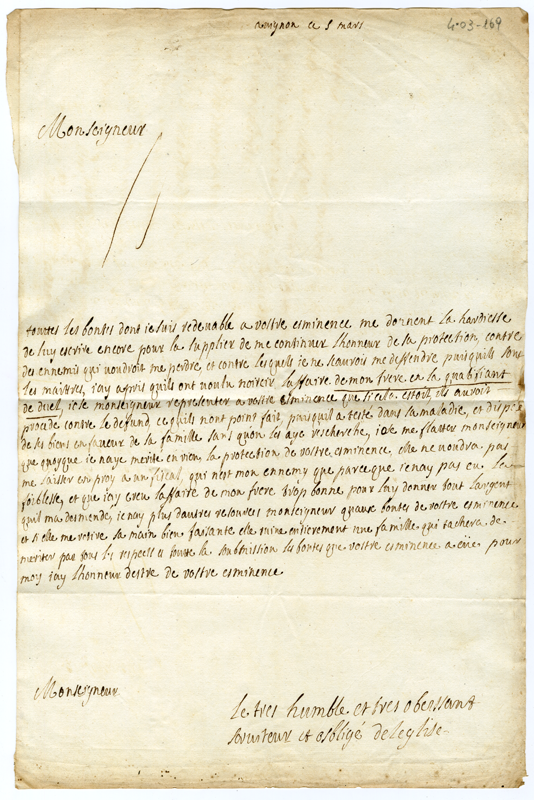 avignon ce 5 mars
4-03-169
Monseigneur
touttes les bontes dont ie suis redeuable a vostre esminence me donnent la hardiesse
de luy escrire encore pour la supplier de me continuer lhonneur de sa protection contre
des ennemis qui voudroit me perdre et contre lesquels ie ne scaurois me deffendre puisquils sont
les maistres, iay apris quils ont voulu noircir laffaire de mon frere en la quabifiant
de duel, iose monseigneur representer a vostre esminence que si cela estoit, ils auroit
procede contre le defund ce quils nont point fait, puisquil a teste dans sa maladie, et dispose
de ses biens en faueur de sa famille sans quon les aye rescherche, iose me flatter monseigneur
que quoyque ie naye merite en rien la protection de vostre esminence, elle ne voudra pas
me laisser en proy a un fiscal, qui nest mon ennemy que parceque ie nay pas eu la
foiblesse, et que iay creu laffaire de mon frere trop bonne pour luy donner tout largent
quil ma desmende, ie nay plus dautres resources monseigneur quaux bontes de vostre esminence
et si elle me retire sa main bien faisante elle ruine entierement une famille qui tachera de
meriter par tous les respects et toutte la soubmission les bontes que vostre esminence a eüe pour
moy iay lhonneur destre de vostre esminence
Monseigneur
le tres humble et tres obeissant
seruiteur et obligé deleglise